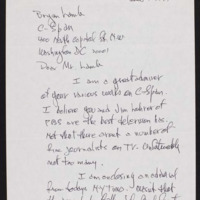 Bryan Lamb
C-Span
400 North Capitol St NW
Washington DC 20001
Dear Mr. Lamb
I am a great admirer
of your various works on C-Span.
I believe you and Jim Lehrer of
PBS are the best
Not that there aren't a number of
fine journalists on TV. Unfortunately
not too many.
I am enclosing an editorial
from today's NY Times